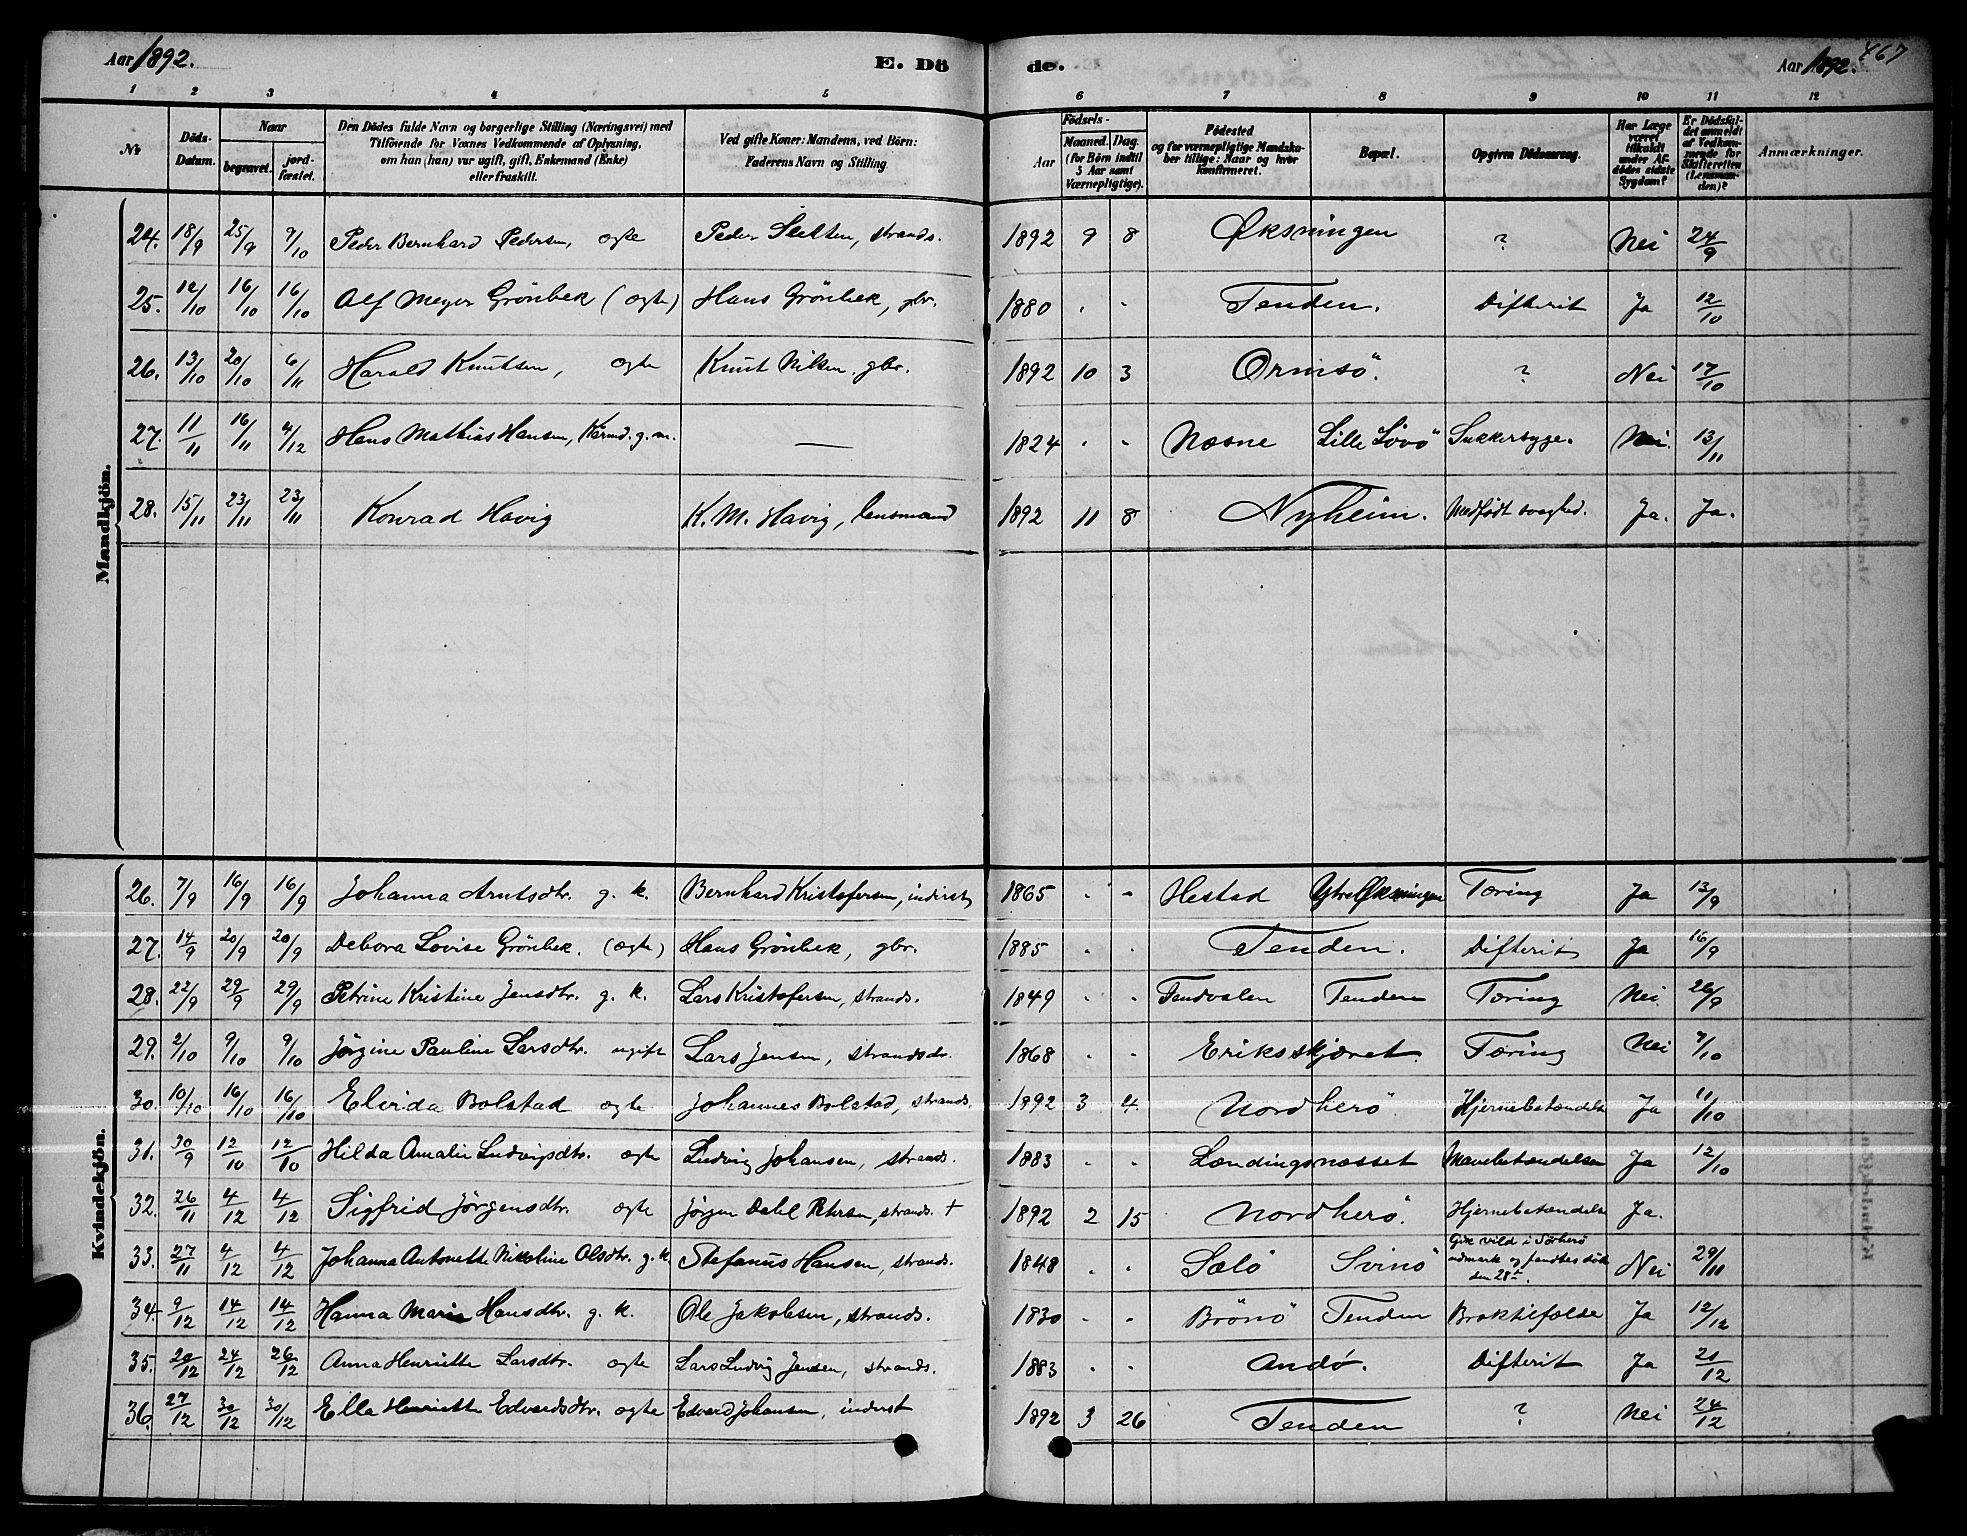 Aar 1892. E. Dö de. Aar 1892. 467
1 2 3 4 5 6 7 8 9 10 11 12
No Döds-Datum. Naar begravet. jord-fæstet. Den Dödes fulde Navn og borgerlige Stilling (Næringsvei) med Tilföiende for Voxnes Vedkommende af Oplysning, om han (hun) var ugift, gift, Enkemand (Enke) eller fraskilt. Ved gifte Koner: Mandens, ved Börn: Faderens Navn og Stilling. Födsels- Aar Maaned. Dag. (for Börn indtil 5 Aar samt Værnepligtige). Födested og for værnepligtige Mandskaber tillige: Naar og hvor konfirmeret. Bopæl. Opgiven Dödsaarsag. Har Læge været tilkaldt under Afdödes sidste Sygdom? Er Dödsfaldet anmeldt af Vedkommende for Skifteretten (Lensmanden)? Anmærkninger.
Mandkjön.
24. 18/9 25/9 9/10 Peder Bernhard Pedersen, ægte Peder Sletten, strands. 1892 9 8 Øksningen ? Nei 24/9
25. 12/10 16/10 16/10 Alf Meyer Grönbek (ægte) Hans Grönbek, gbr. 1880 " " Tenden. Difterit Ja 12/10
26. 13/10 20/10 6/11 Harald Knutsen, ægte Knut Nilsen, gbr. 1892 10 3 Ormsö. ? Nei 17/10
27. 11/11 16/11 4/12 Hans Mathias Hansen, Kårmd. g. m. — 1824 " " Næsne Lille Lövö Sukkersyge. Nei. 13/11
28. 15/11 23/11 23/11 Konrad Havig K. M. Havig, lensmand 1892 11 8 Nyheim. Medfødt svaghed. Ja. Ja.
Kvindekjön.
26. 7/9 16/9 16/9 Johanna Arntsdtr. g. k. Bernhard Kristofersen, inderst 1865 " " Hestad Ytre Øksningen Tæring Ja 13/9
27. 14/9 20/9 20/9 Debora Lovise Grönbek. (ægte) Hans Grönbek, gbr. 1885 " " Tenden. Difterit Ja 16/9
28. 22/9 29/9 29/9 Petrine Kristine Jensdtr. g. k. Lars Kristofersen, strands. 1849 " " Tendvalen Tenden Tæring Nei 26/9
29. 2/10 9/10 9/10 Jørgine Pauline Larsdtr. ugift Lars Jensen, strandsdr. 1868 " " Eriksskjæret. Tæring Nei 7/10
30. 10/10 16/10 16/10 Elvida Bolstad ægte Johannes Bolstad, strands. 1892 3 4 Nordherö. Hjernebetændelse Ja 11/10
31. 30/9 12/10 12/10 Hilda Amalie Ludvigsdtr. ægte Ludvig Johansen, strands. 1883 " " Lændingsnæsset Mavebetændelsen Ja 12/10
32. 26/11 4/12 4/12 Sigfrid Jörgensdtr. ægte Jörgen Dahl Petersen, strands. + 1892 2 15 Nordherö. Hjernebetændelse Ja.
33. 27/11 4/12 4/12 Johanna Antonette Nikoline Olsdtr. g. k. Stefanus Hansen, strands. 1848 " " Sælö Svinö Gik vild i Sörherö udmark og fandtes död den 28de. Nei 29/11
34. 9/12 14/12 14/12 Hanna Marie Hansdtr. g. k. Ole Jakobsen, strands. 1830 " " Brönö Tenden Braktilfælde Ja 12/12
35. 20/12 24/12 26/12 Anna Henriette Larsdtr. ægte Lars Ludvig Jensen, strands. 1883 " " Andö. Difterit Ja 21/12
36. 27/12 30/12 30/12 Ella Henriette Edvardsdtr. ægte Edvard Johansen, inderst 1892 3 26 Tenden ? Nei 24/12